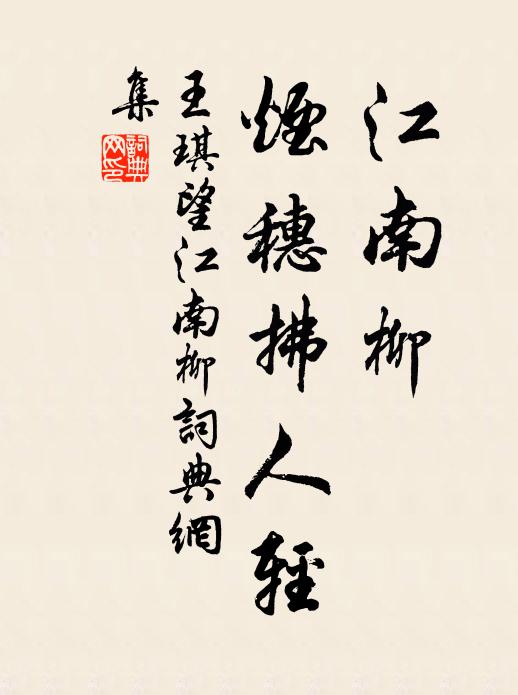 江南柳
煙穗拂人輕
王琪望江南柳詞典網
集
詞典
网印